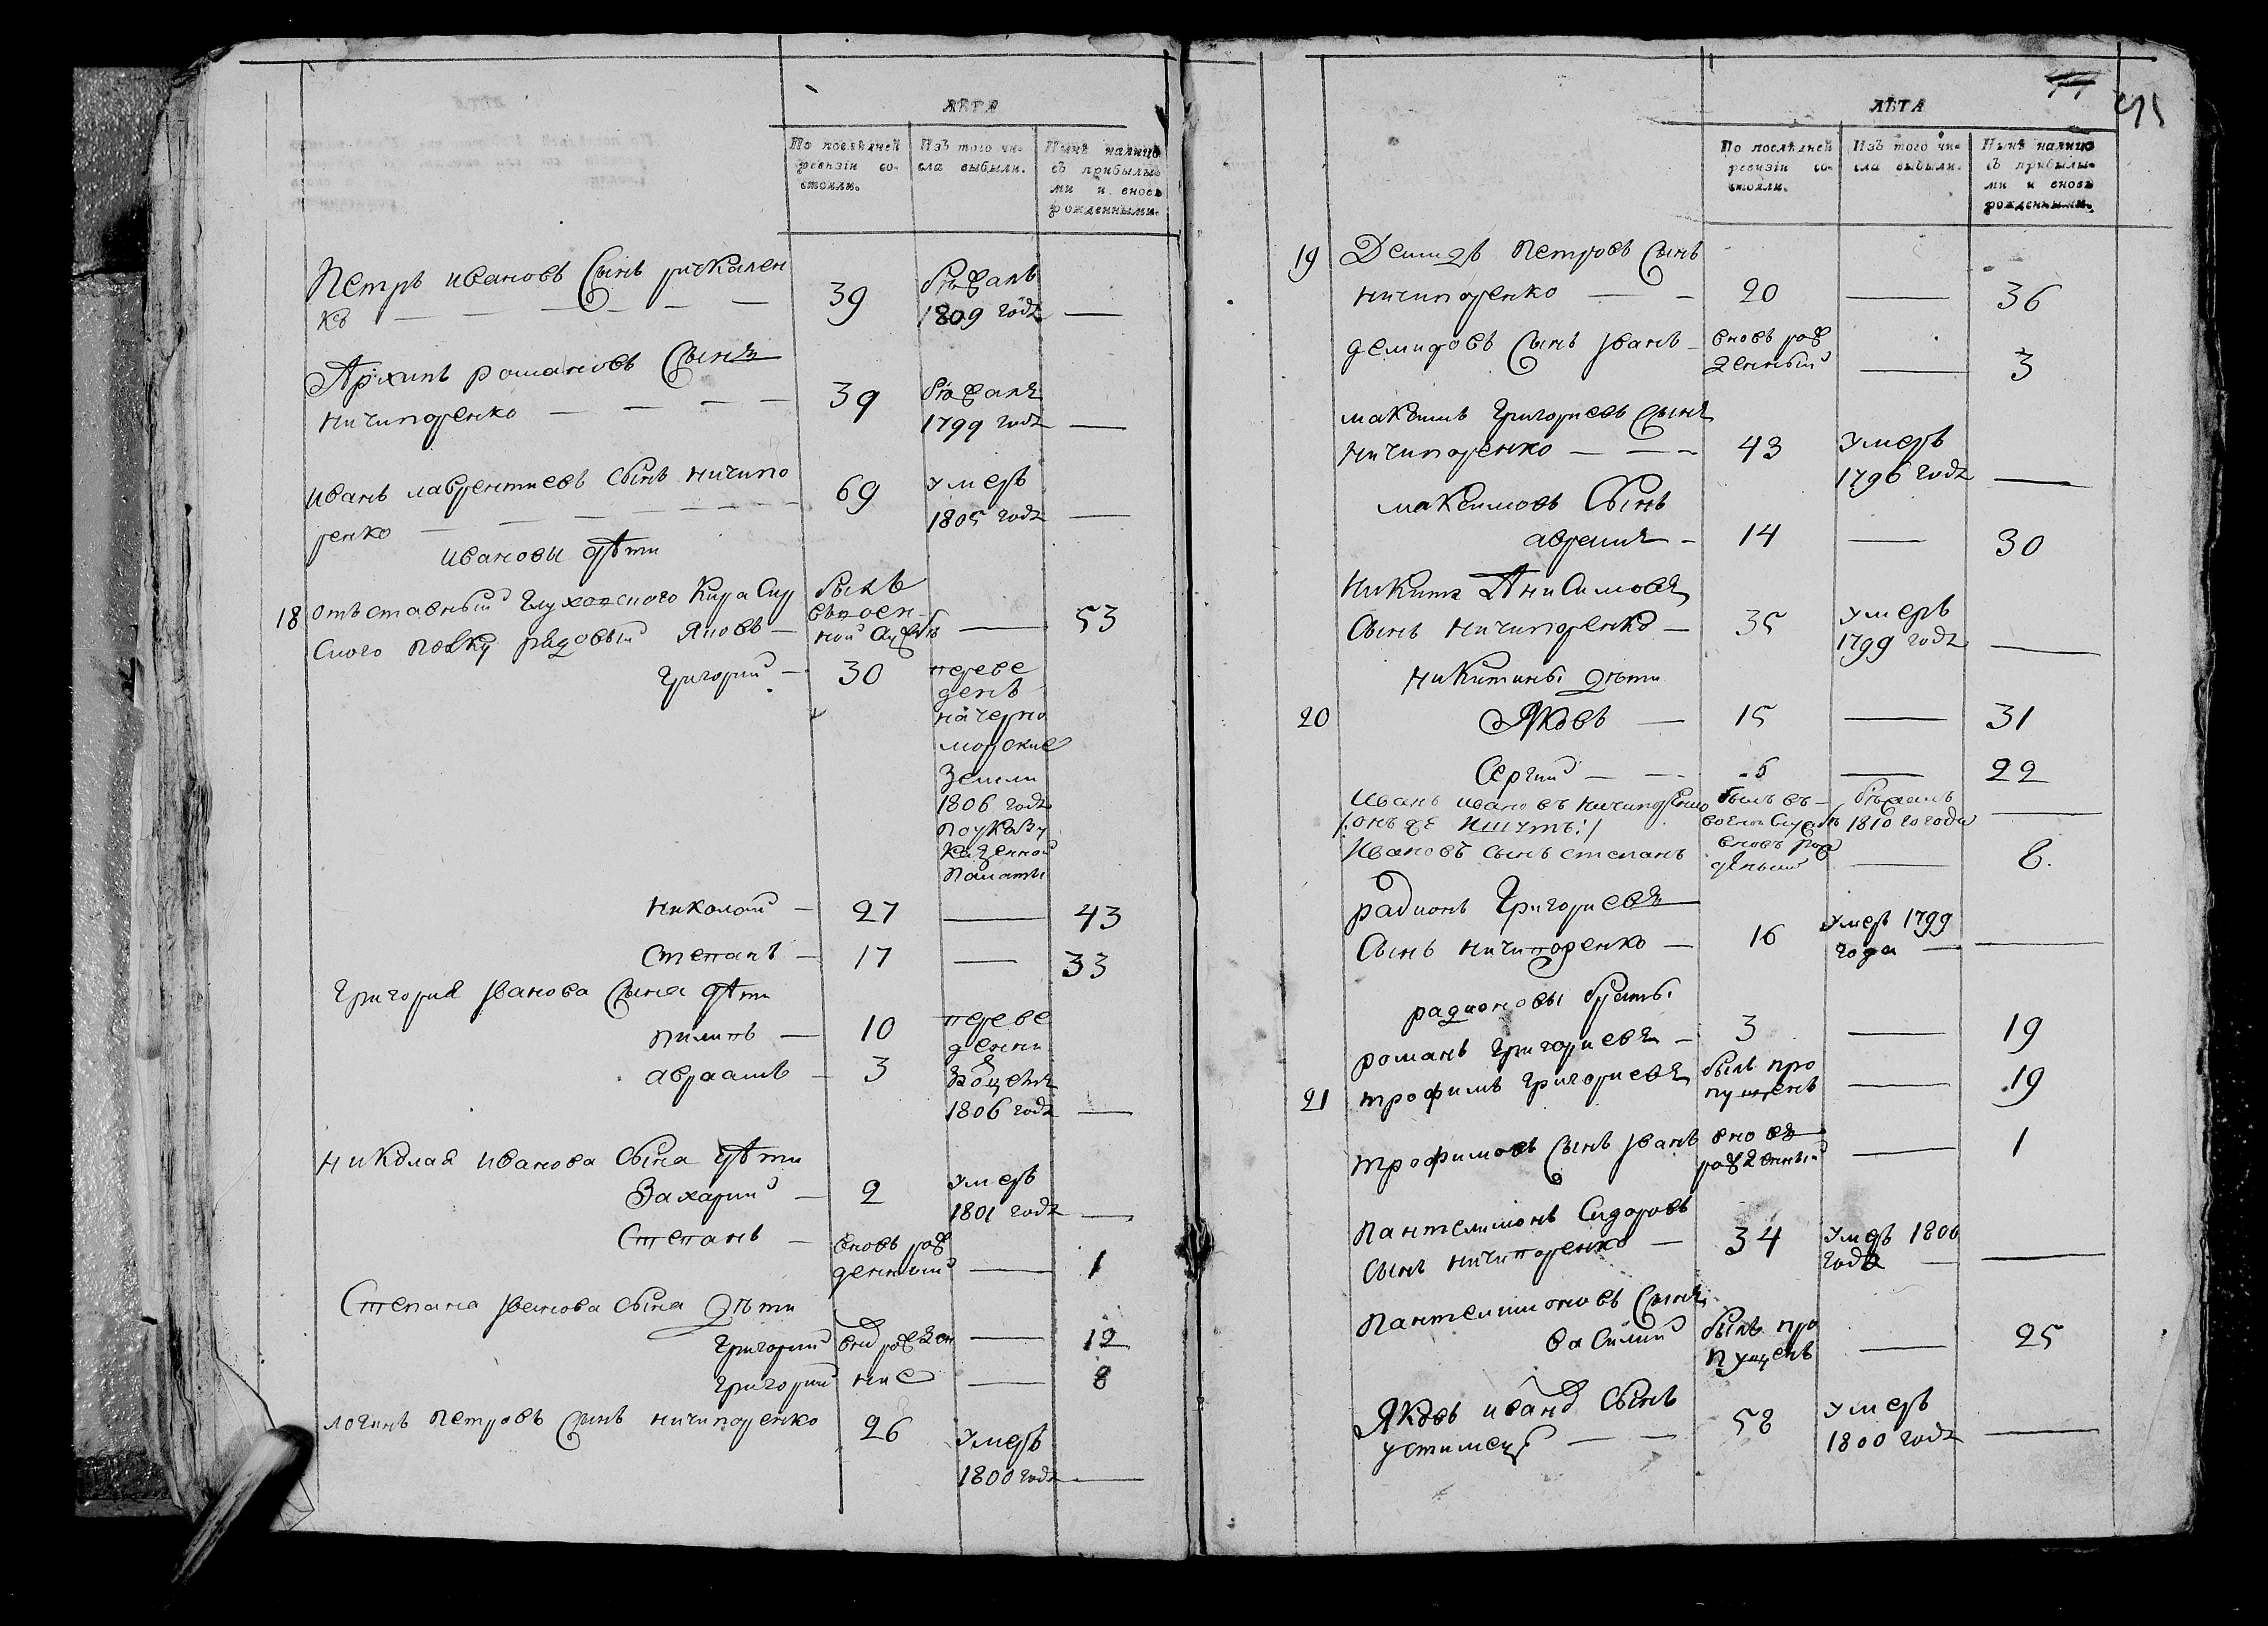 ЛѢТА
По послѣдней ревизіи со-стояли.
Изъ того чи-сла выбыли.
Нынѣ налицо съ прибылы-ми и вновь рожденными.
Петръ ивановъ Сынъ
къ — 39 бѣжалъ 1809 годꙋ —
Архипъ романовъ Сынъ
ничипоренко — 39 бѣжалъ 1799 годꙋ —
иванъ лаврентиевъ Сынъ ничипо
ренко — 69 умеръ 1805 годꙋ —
ивановы дѣти
18 отъставный Глуховского Кирасир
Ского полку рядовый Яковъ — былъ въвоен-ной службѣ — 53
григорий — 30 переве
денъ
на черно
морские
Земли
1806 годꙋ
поуказу
Казенной
Палаты
николай — 27 — 43
Степанъ — 17 — 33
григория иванова Сына дѣти
пилипъ — 10 переве
дены
авраамъ — 3
1806 годꙋ —
николая иванова Сына дѣти
Захарий — 2 умеръ
1801 годꙋ —
Степанъ — вновь рож
денный — 1
Степана иванова Сына дѣти
григорий внов рожден — 12
григорий ние — 8
логинъ петровъ Сынъ ничипоренко 26 умеръ
1800 годꙋ —
ЛѢТА
По послѣдней ревизіи со-стояли.
Изъ того чи-сла выбыли.
Нынѣ налицо съ прибылы-ми и вновь рожденными.
19 Демидъ петровъ Сынъ
ничипоренко — 20 — 36
демидовъ Сынъ иванъ — вновь рож
денный — 3
максимъ григориевъ Сынъ
ничипоренко — 43 умеръ
1796 годꙋ —
максимовъ Сынъ
аврамъ — 14 — 30
никита Анисимовъ
Сынъ ничипоренко — 35 умеръ
1799 годꙋ —
никитины дѣти
20 Яковъ — 15 — 31
Сергий — 6 — 22
Иванъ ивановъ ничипоренко былъ въ — бѣжалъ
/:онъ же Ишутъ:/ военой службѣ 1810 го года —
Ивановъ сынъ степанъ вновъ рож
деный — 8.
радионъ григориевъ
Сынъ ничипоренко — 16 умеръ 1799
года —
радионовы браты
романъ григориевъ — 3 — 19
21 трофимъ григориевъ былъ про
пущенъ — 19
трофимовъ Сынъ иванъ вновъ
рожденный — 1
пантелимонъ Сидоровъ
Сынъ ничипоренко — 34 умеръ 1806
годꙋ —
пантелимоновъ Сынъ
василий былъ про
пущенъ — 25
Яковъ иванов Сынъ
устимецъ — 58 умеръ
1800 годꙋ —